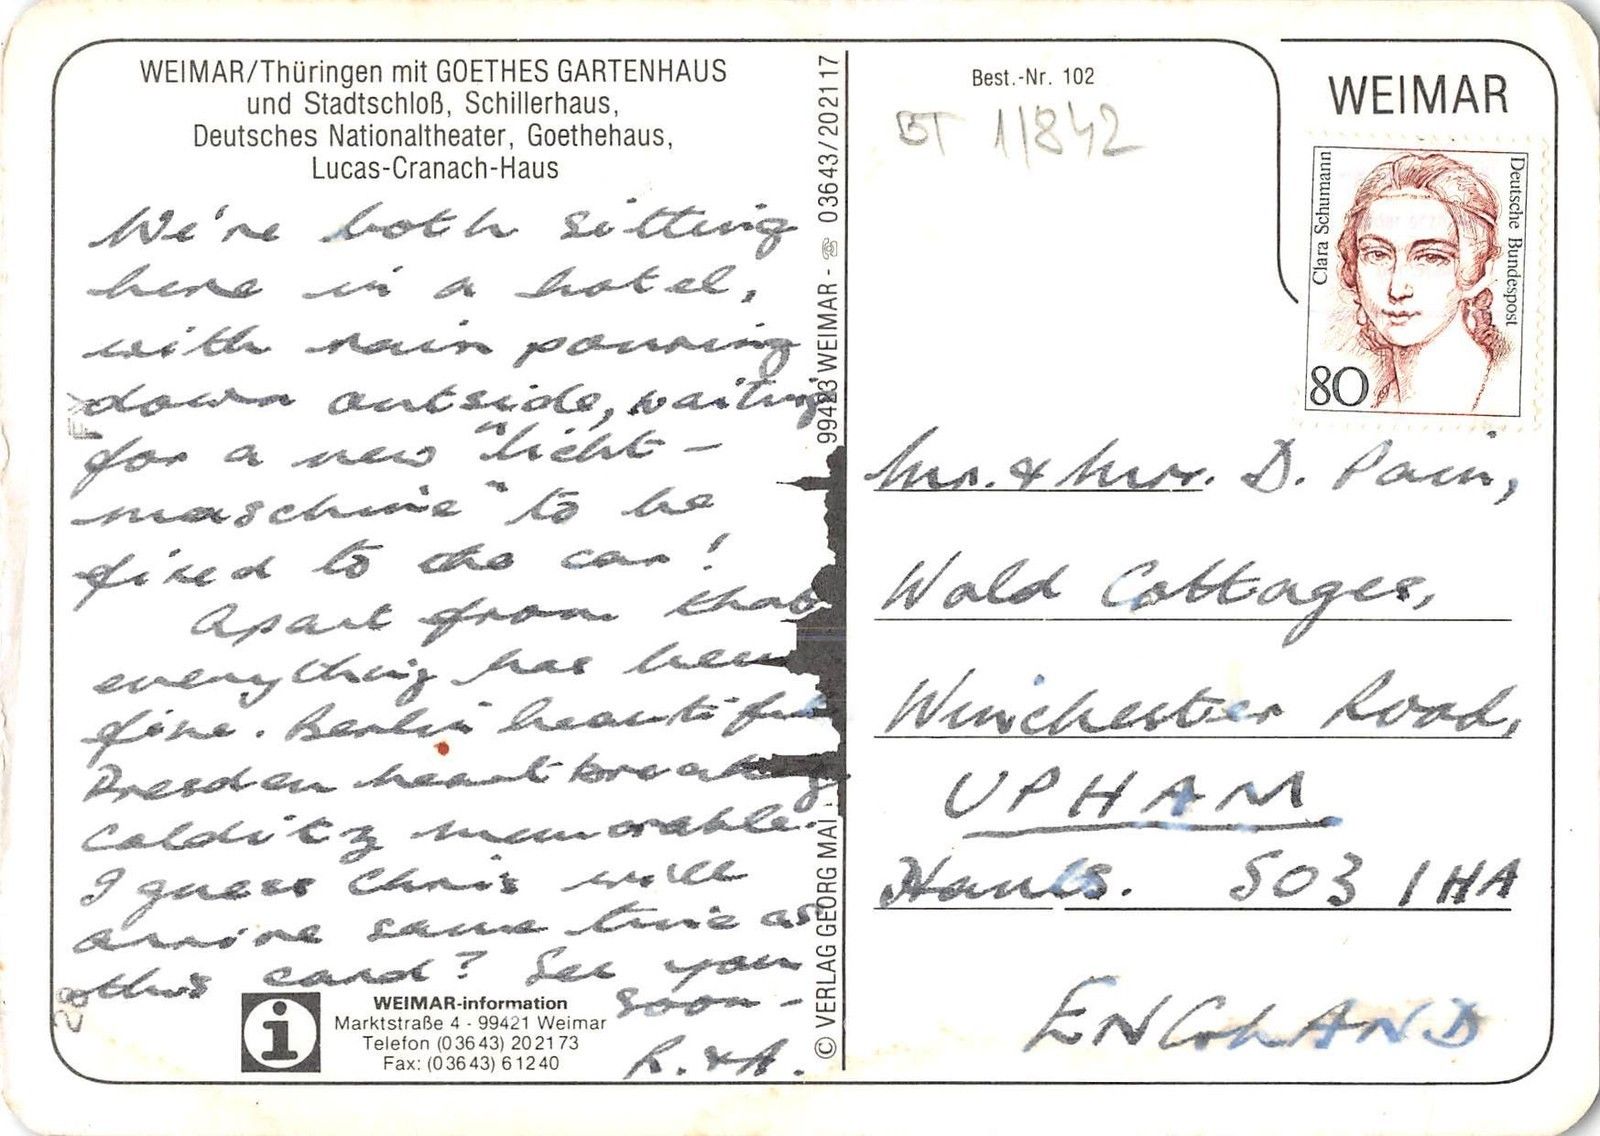 WEIMAR/Thüringen mit GOETHES GARTENHAUS
und Stadtschloß, Schillerhaus,
Deutsches Nationaltheater, Goethehaus,
Lucas-Cranach-Haus
We're both sitting
here in a hotel,
with rain pouring
down outside, waiting
for a new "licht-
maschine" to be
fixed to the car!
Apart from that
everything has been
fine. Berlin beautiful
Dresden heartbreaking
Colditz memorable.
I guess Chris will
arrive same time as
this card? See you
soon -
R. & A.
WEIMAR-information
Marktstraße 4 - 99421 Weimar
Telefon (03643) 202173
Fax: (03643) 61240
© VERLAG GEORG MAI, 99423 WEIMAR - ☏ 03643/202117
Best.-Nr. 102
BT 1/842
WEIMAR
Clara Schumann
Deutsche Bundespost
80
Mr. & Mrs. D. Pain,
Wold Cottages,
Winchester Road,
UPHAM
Hants. SO3 1HA
ENGLAND